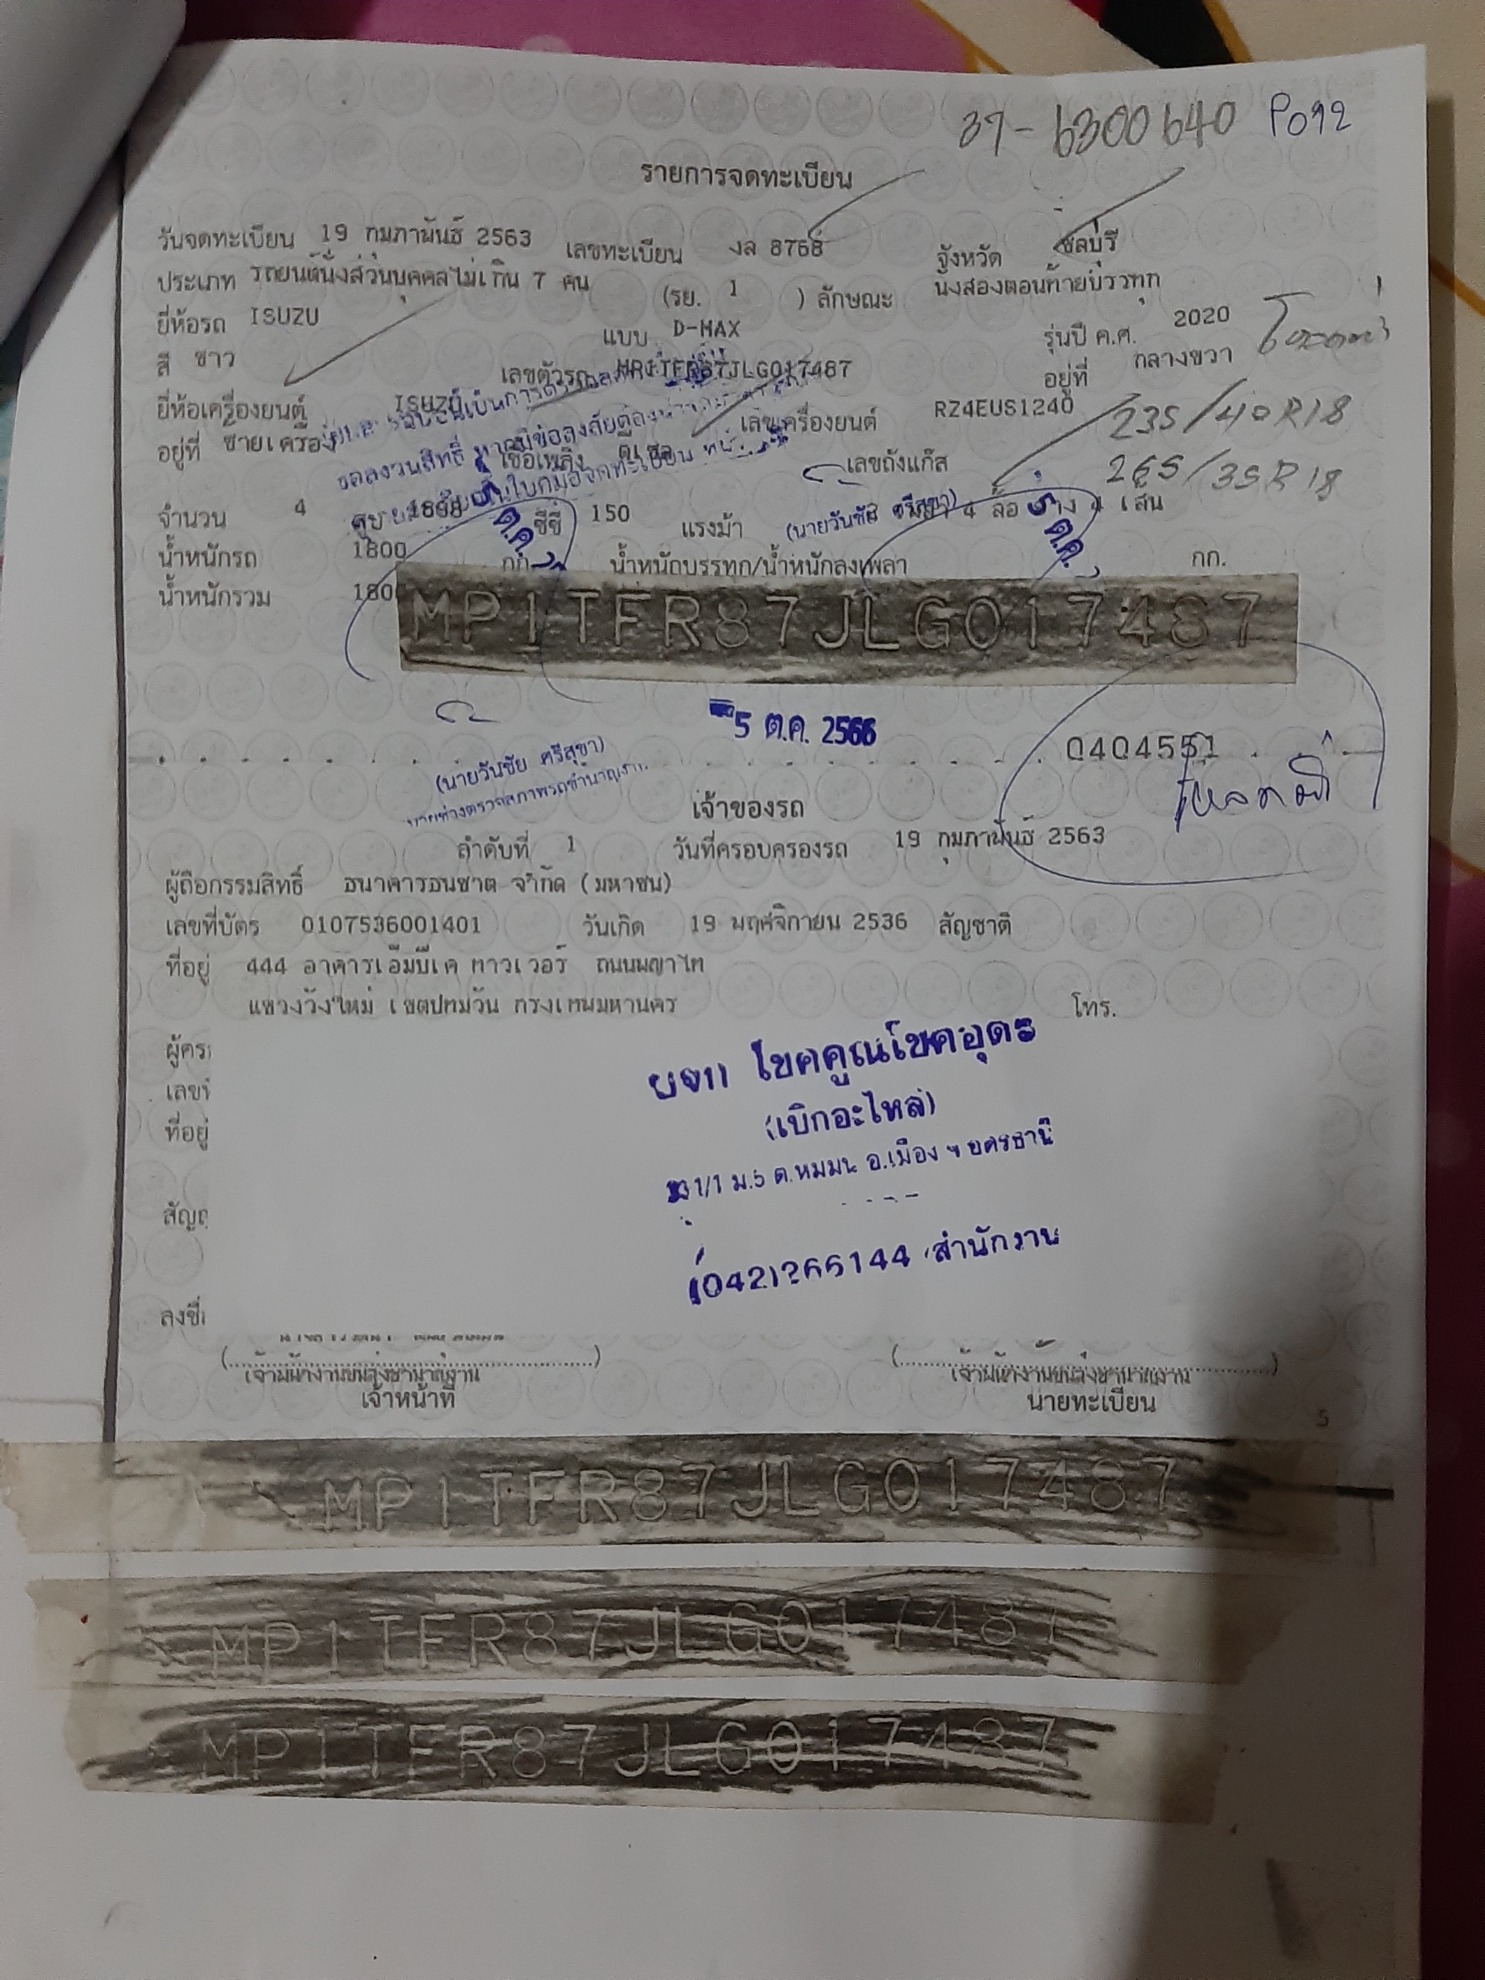 37-6300640 P092
รายการจดทะเบียน
วันจดทะเบียน 19 กุมภาพันธ์ 2563 เลขทะเบียน งล 8768 จังหวัด ชลบุรี
ประเภท รถยนต์นั่งส่วนบุคคลไม่เกิน 7 คน (รย. 1 ) ลักษณะ นั่งสองตอนท้ายบรรทุก
ยี่ห้อรถ ISUZU แบบ D-MAX รุ่นปี ค.ศ. 2020
สี ขาว เลขตัวรถ MP1TFR87JLG017487 อยู่ที่ กลางขวา
ยี่ห้อเครื่องยนต์ ISUZU เลขเครื่องยนต์ RZ4EUS1240 235/40R18
อยู่ที่ ซ้ายเครื่อง เชื้อเพลิง ดีเซล เลขถังแก๊ส 265/35R18
จำนวน 4 สูบ 1898 ซีซี 150 แรงม้า (นายวันชัย ศรีสุขา) 4 ล้อ ยาง 4 เส้น
น้ำหนักรถ 1800 กก. น้ำหนักบรรทุก/น้ำหนักลงเพลา กก.
น้ำหนักรวม 180
MP1TFR87JLG017487
5 ต.ค. 2566
0404551
(นายวันชัย ศรีสุขา)
นายช่างตรวจสภาพรถชำนาญงาน
เจ้าของรถ
ลำดับที่ 1 วันที่ครอบครองรถ 19 กุมภาพันธ์ 2563
ผู้ถือกรรมสิทธิ์ ธนาคารธนชาต จำกัด (มหาชน)
เลขที่บัตร 0107536001401 วันเกิด 19 พฤศจิกายน 2536 สัญชาติ
ที่อยู่ 444 อาคารเอ็มบีเค ทาวเวอร์ ถนนพญาไท
แขวงวังใหม่ เขตปทุมวัน กรุงเทพมหานคร โทร.
ผู้คร
เลขที่
ที่อยู่
สัญญ
ลงชื่อ
โชคคูณโชคอุดร
(เบิกอะไหล่)
1/1 ม.5 อ.เมือง
(042)266144 สำนักงาน
(....................) (....................)
เจ้าพนักงานขนส่งชำนาญงาน เจ้าพนักงานขนส่งชำนาญงาน
เจ้าหน้าที่ นายทะเบียน
5
MP1TFR87JLG017487
MP1TFR87JLG017487
MP1TFR87JLG017487